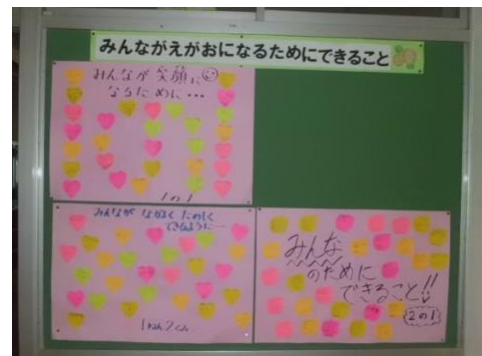 みんながえがおになるためにできること
みんなが笑顔に
なるために・・・
1の1
みんなが なかよく たのしく
できるように…
1ねん2くみ
みんな
のために
できること!!
2の1